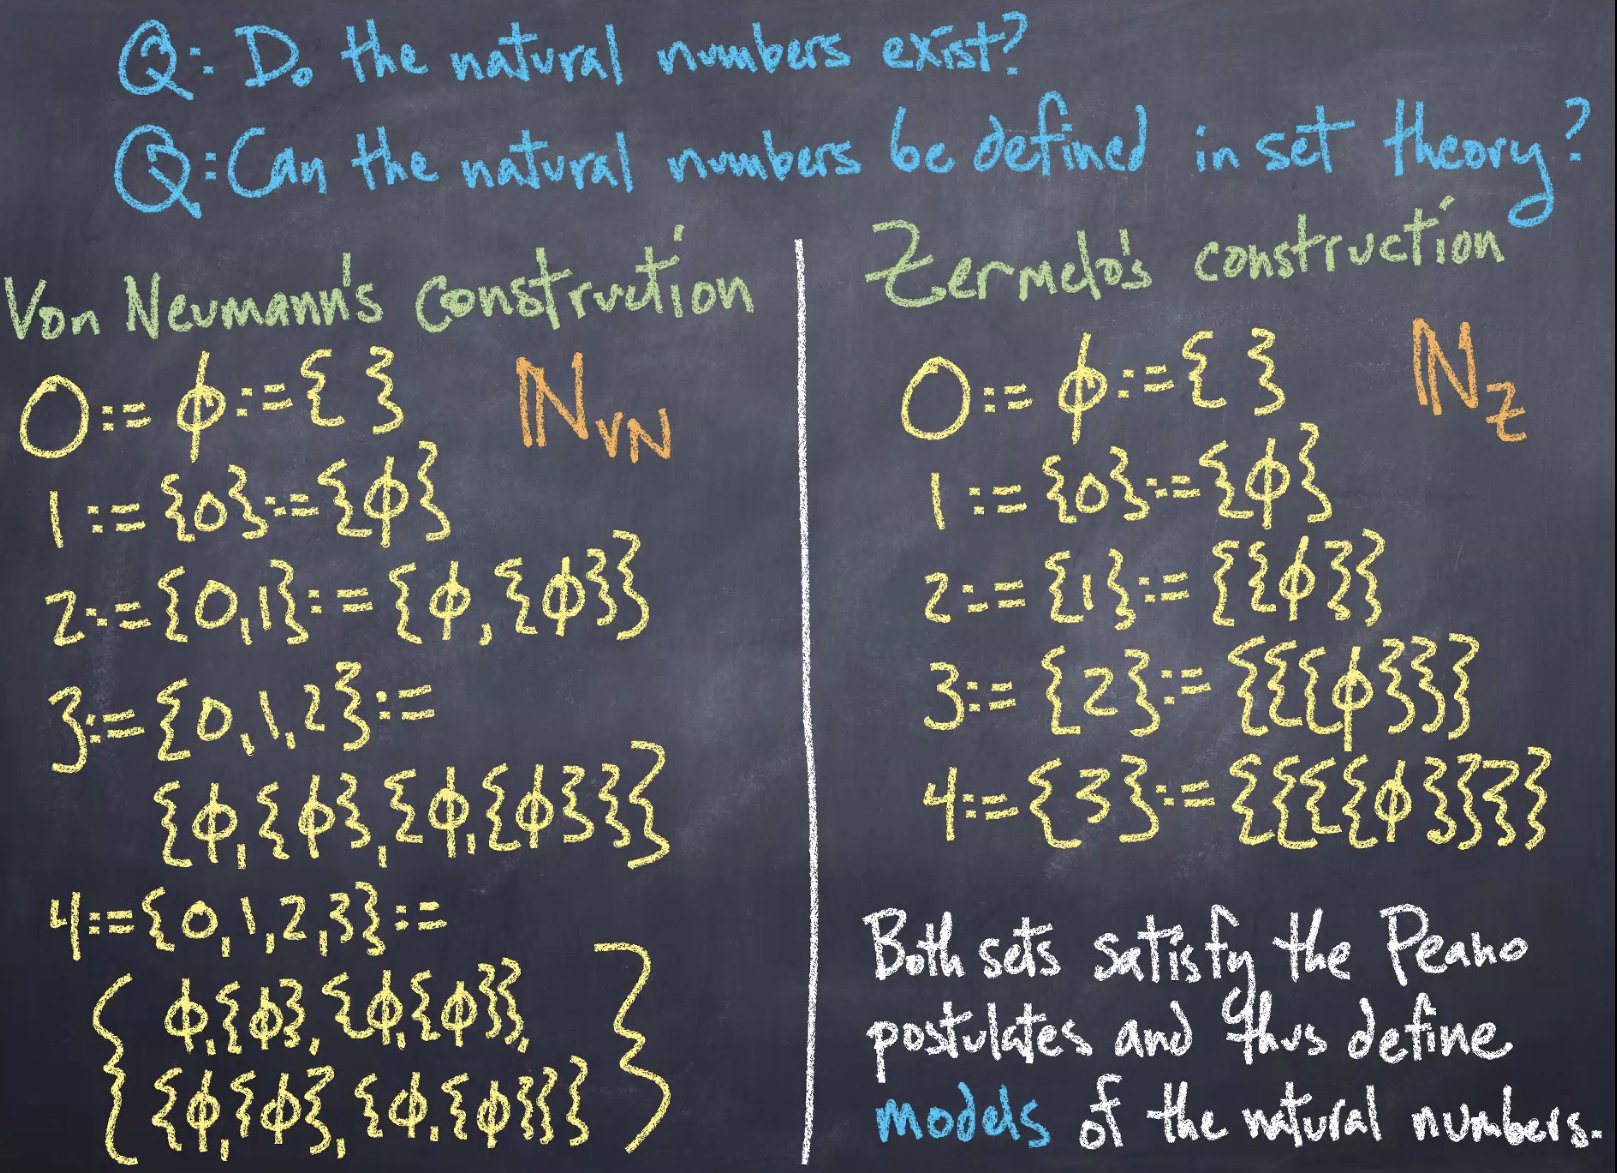 Q: Do the natural numbers exist?
Q: Can the natural numbers be defined in set theory?
Von Neumann's construction
0 := ϕ := { }
ℕ_VN
1 := {0} := {ϕ}
2 := {0,1} := {ϕ, {ϕ}}
3 := {0,1,2} :=
{ϕ, {ϕ}, {ϕ, {ϕ}}}
4 := {0,1,2,3} :=
{ϕ, {ϕ}, {ϕ {ϕ}},
{ϕ, {ϕ}, {ϕ, {ϕ}}}}
Zermelo's construction
0 := ϕ := { }
ℕ_Z
1 := {0} := {ϕ}
2 := {1} := {{ϕ}}
3 := {2} := {{{ϕ}}}
4 := {3} := {{{{ϕ}}}}
Both sets satisfy the Peano
postulates and thus define
models of the natural numbers.